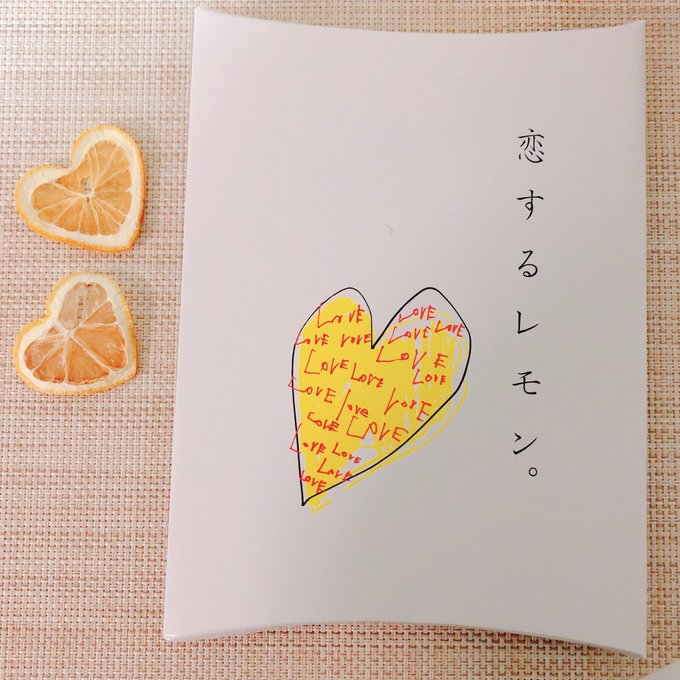 恋するレモン。
LOVE
LOVE
LOVE LOVE
LOVE LOVE
LOVE
LOVE LOVE
LOVE
LOVE
love
LOVE
LOVE LOVE
LOVE LOVE
LOVE
LOVE